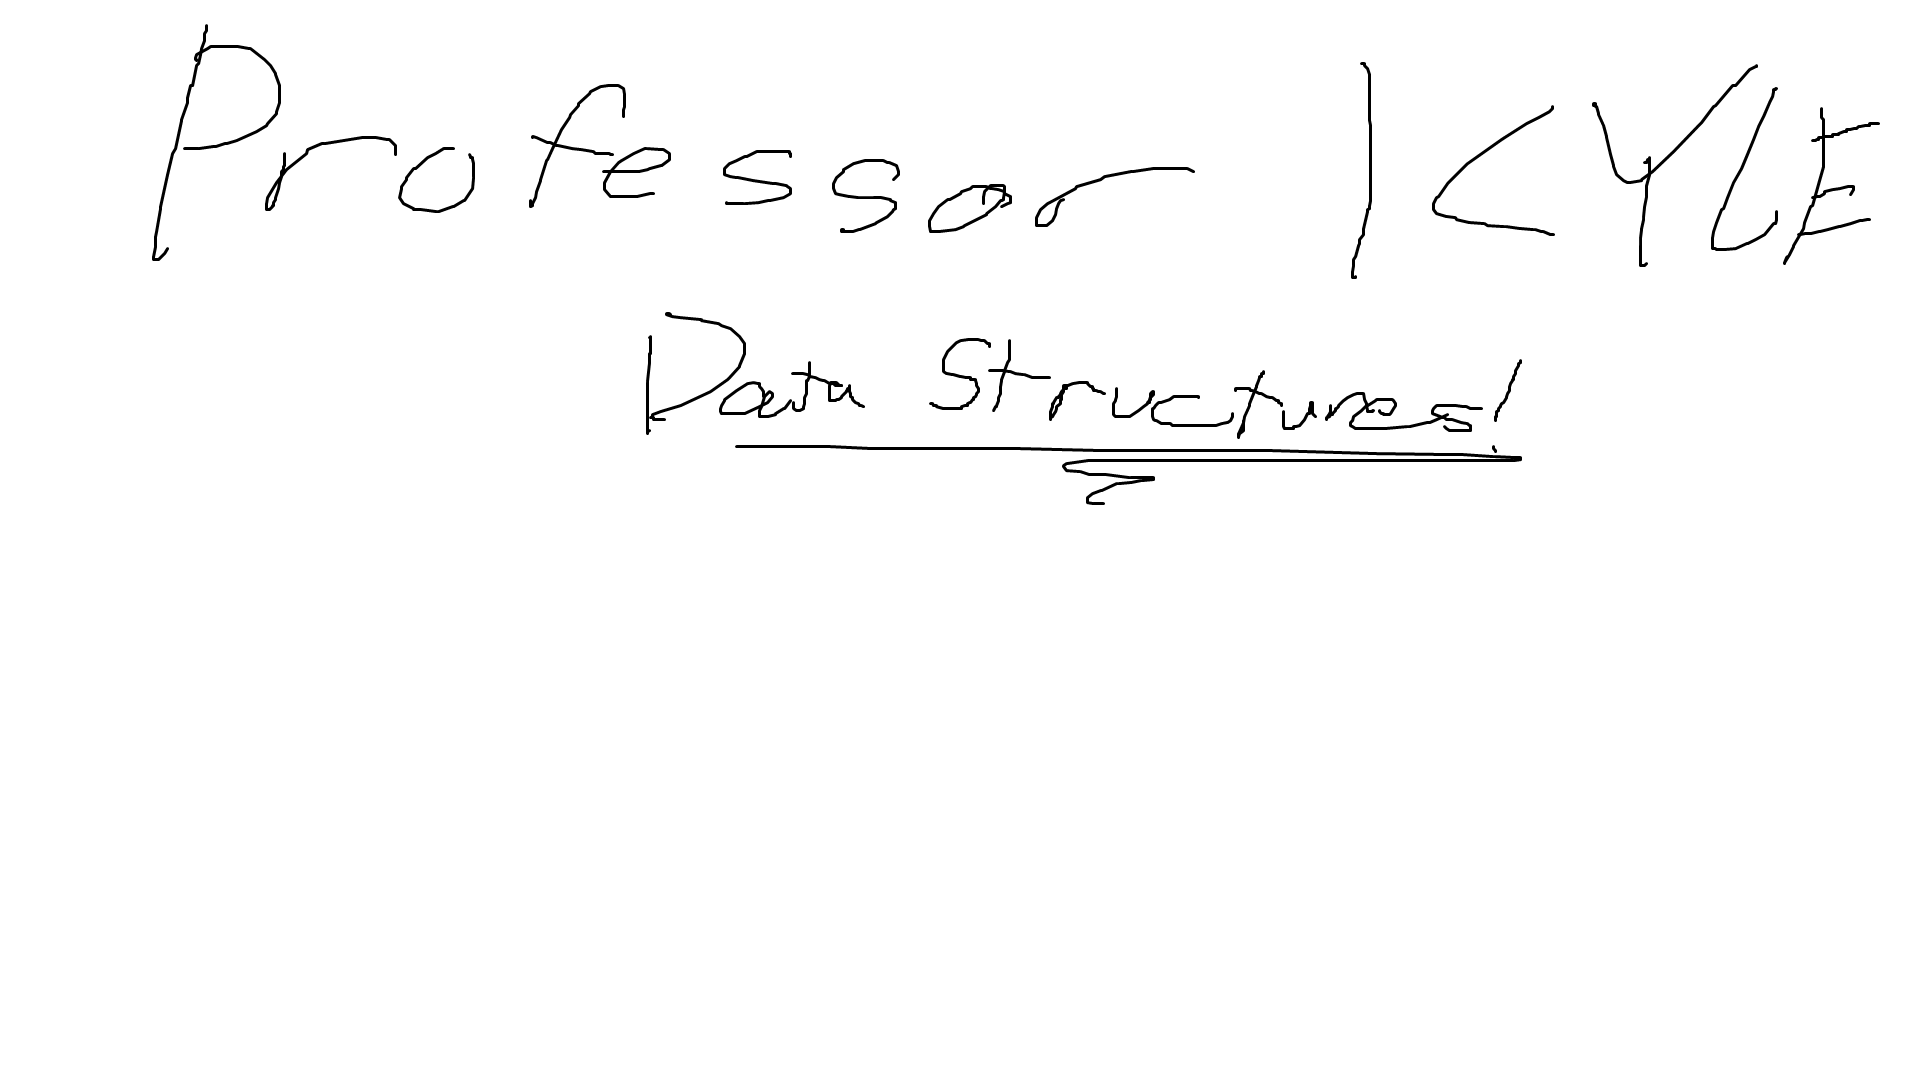 Professor KYLE
Data Structures!